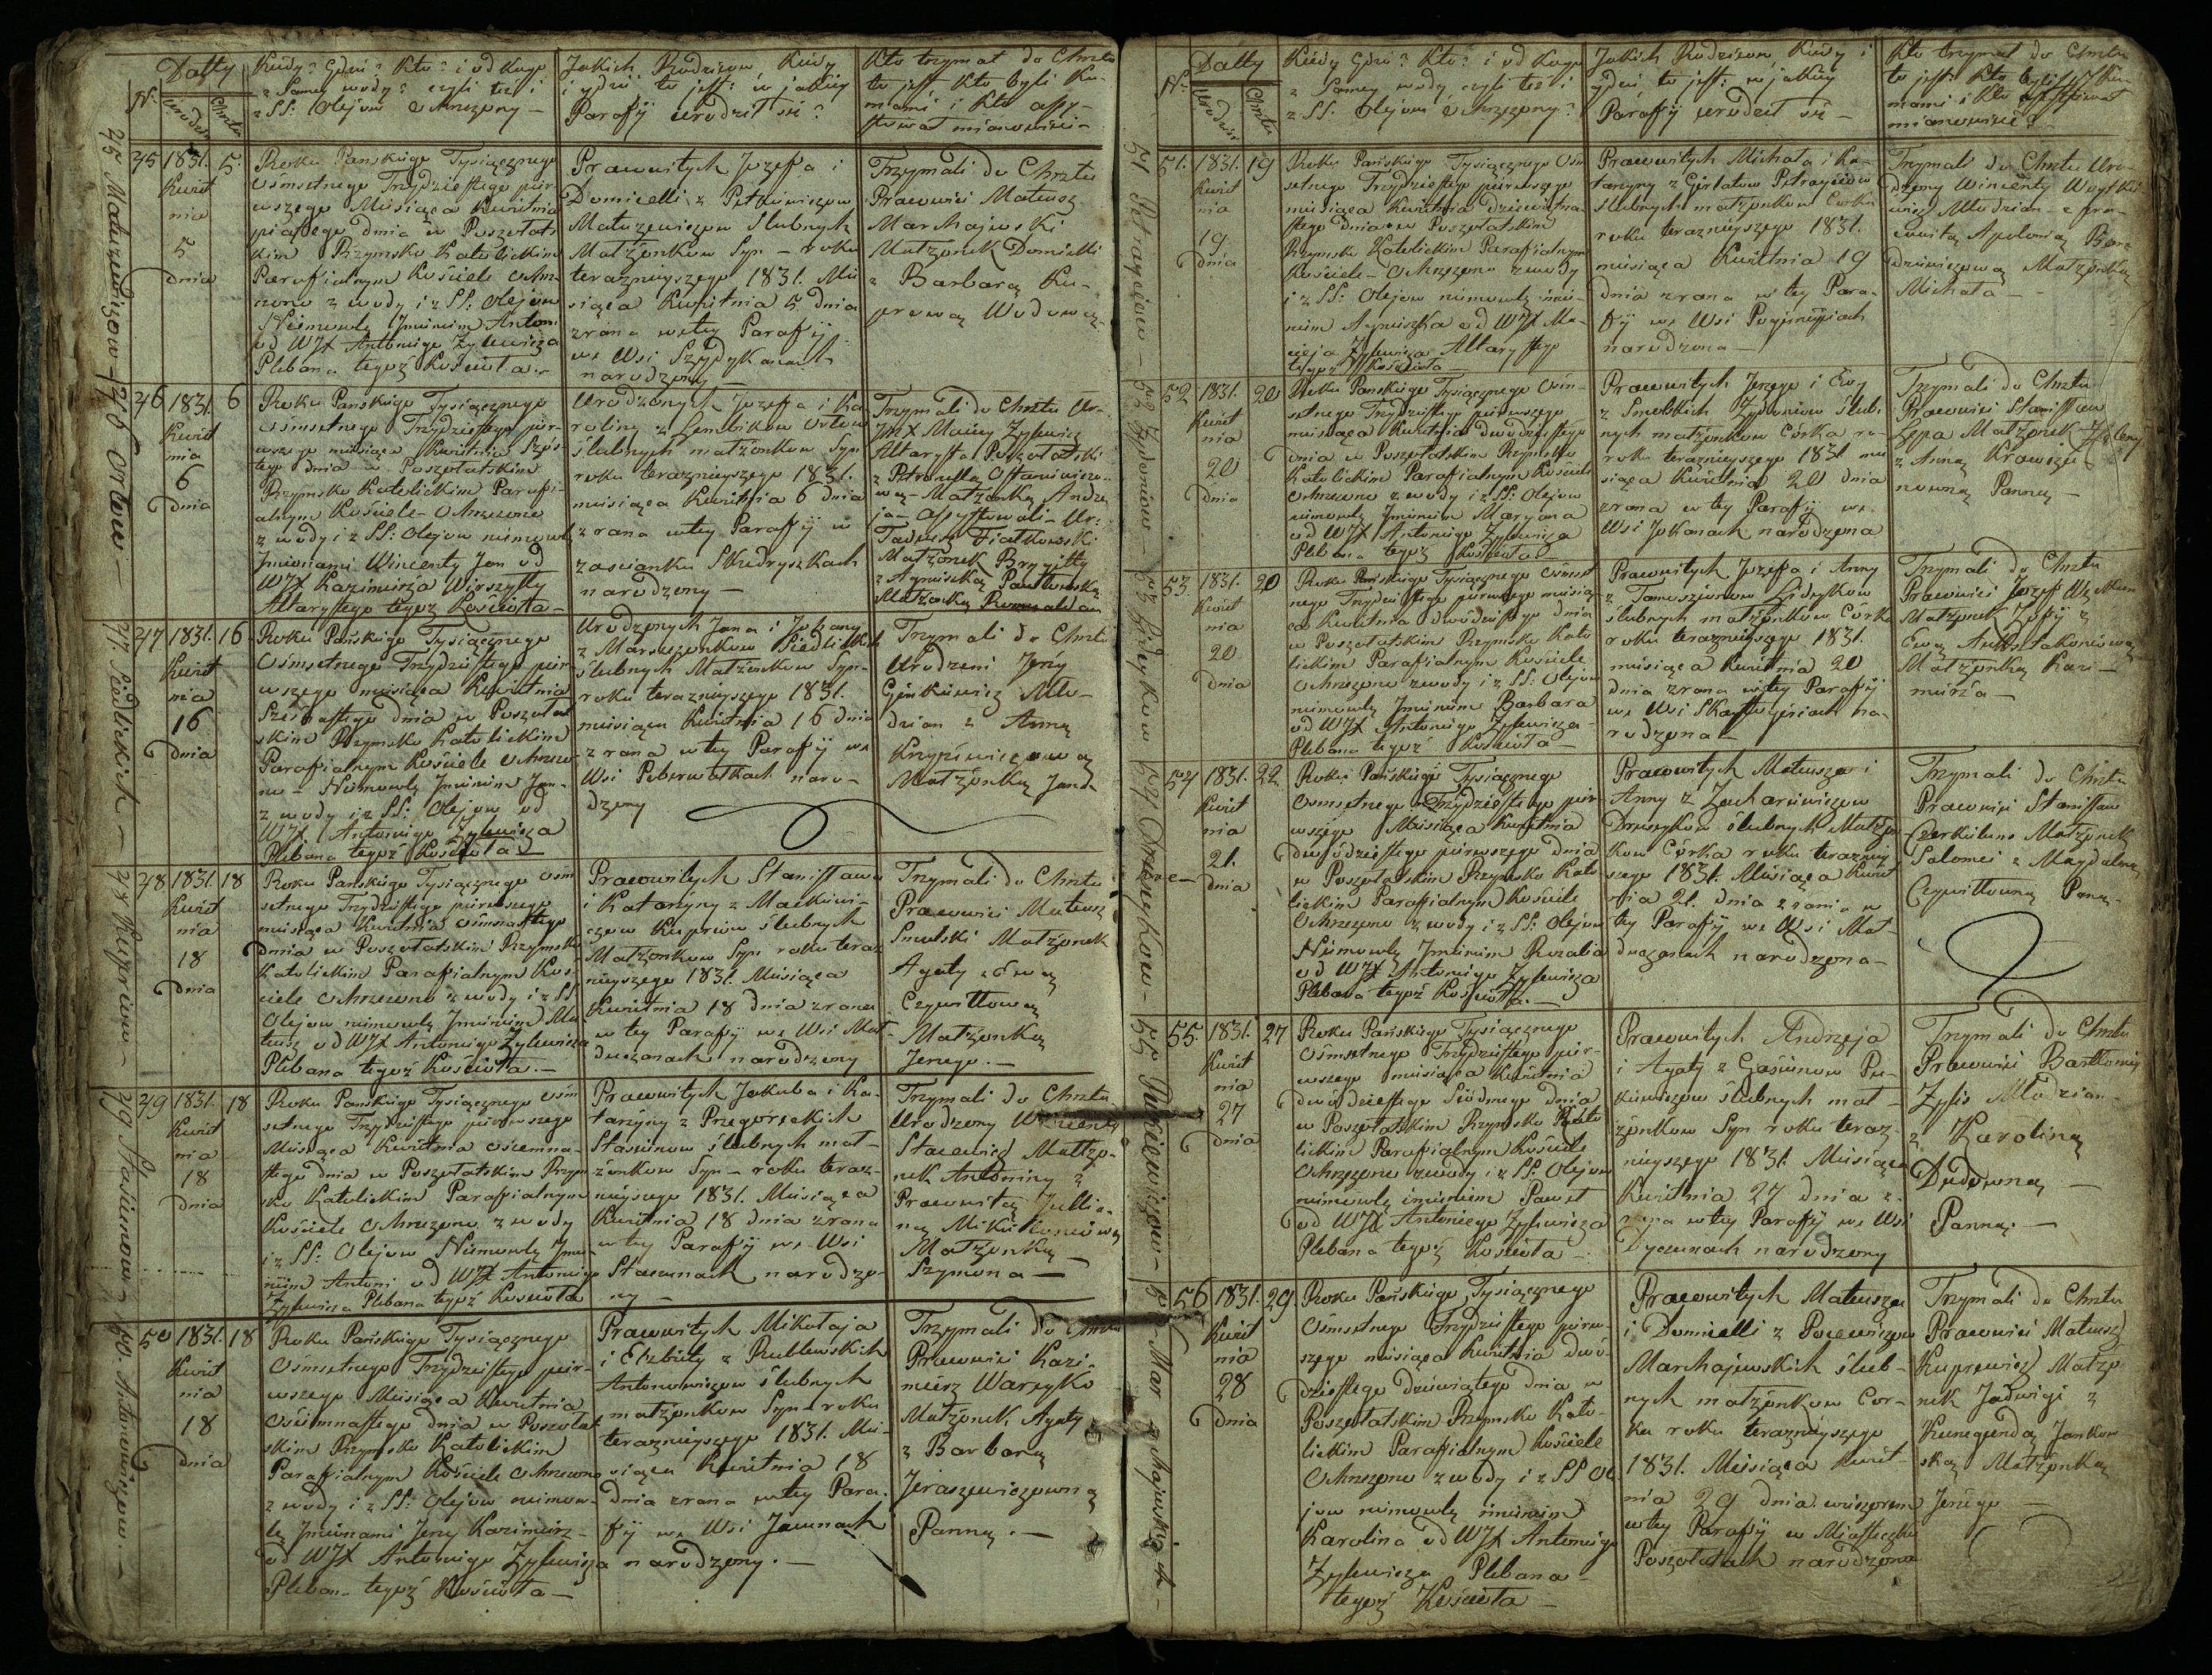 Datty
Nr
urodz:
Chrztu
Kiedy? Gdzie? Kto? i od kogo
z Samey wody? czyli też i
z SS: Olejow Ochrzczony —
Jakich Rodzicow, Kiedy
i gdzie to jest: w jakiey
Parafij urodził się?
Kto trzymał do Chrztu
to jest Kto byli Ku-
mami i Kto assy-
stował mianowicie —
45 Matuzewiczow —
45
1831.
Kwiet
nia
5
dnia
5.
Roku Panskiego Tysiącznego
Osmsetnego Trzydziestego pier
wszego Miesiąca Kwietnia
piątego dnia w Poszołats
kim Rzymsko Katolickim
Parafialnym Kościele Ochrz
czono z wody i z SS: Olejow
Niemowle Jmieniem Antoni
od WJX Antoniego Żylewicza
Plebana tegoż Kościoła. —
Prawowitych Jozefa i
Domicelli z Petkiewiczow
Matuzewiczow Slubnych
Małżonkow Syn — roku
terazniejszego 1831. Mie
siąca Kwietnia 5 dnia
zrana w tey Parafij
we Wsi Szydykanach
narodzony —
Trzymali do Chrztu
Prawowici Mateusz
Marchajewski
Małżonek Domicelli
z Barbarą Ku-
prową Wdową.
46 Orłow —
46
1831.
Kwiet
nia
6
dnia
6
Roku Panskiego Tysiącznego
Osmsetnego Trzydziestego pier-
wszego miesiąca Kwietnia Szós-
tego dnia w Poszołatskim
Rzymsko Katolickim Parafi-
alnym Kościele — Ochrzczono
z wody i z SS: Olejow niemowle
Jmionami Wincenty Jan od
WJX Kazimierza Wirszyłły
Altarystego tegoż Kościoła —
Urodzonych Jozefa i Ka-
roliny z Gembikow Orłow
ślubnych małżonkow Syn
roku terazniejszego 1831.
miesiąca Kwietnia 6 dnia
z rana w tey Parafij w
zascianku Skudryszkach
narodzony —
Trzymali do Chrztu Ur.
JmX Maciey Żylewicz
Altarysta Poszołatski
z Petronellą Ostaniewiczo-
wą — Małżonką Andrze
ja — Assystowali — Ur:
Tadeusz Fiałkowski
Małżonek Brygitty
z Agnieszką Pawłowską
Małżonką Romualda
47 Siedlickich —
47
1831.
Kwiet
nia
16
dnia
16
Roku Pańskiego Tysiącznego
Osmsetnego Trzydziestego pier
wszego miesiąca Kwietnia
Szesnastego dnia w Poszołat
skim Rzymsko Katolickim
Parafialnym Kościele Ochrzczo
no — Niemowle Jmieniem Jan-
z wody i z SS: Olejow od
WJX Antoniego Żylewicza
Plebana tegoż Kościoła —
Urodzonych Jana i Johany
z Marcinkow Siedlickich
ślubnych Małżonkow Syn-
roku terazniejszego 1831.
miesiąca Kwietnia 16 dnia
z rana w tey Parafij we
Wsi Poberwałkach naro-
dzony
Trzymali do Chrztu
Urodzeni Jerzy
Ginkiewicz Mło-
dzian z Anną
Krypiewiczową
Małżonką Jana
48 Kupriow —
48
1831.
Kwiet
nia
18
dnia
18
Roku Panskiego Tysiącznego Osm
setnego Trzydziestego pierwszego
miesiąca Kwietnia Osmnastego
dnia w Poszołatskim Rzymsko
Katolickim Parafialnym Koś-
ciele Ochrzczono z wody i z SS
Olejow niemowle Jmieniem Ma-
teusz od WJX Antoniego Żylewicza
Plebana tegoż Kościoła. —
Prawowitych Stanisława
i Katarzyny z Maćkiewi-
czow Kupriow ślubnych
Małżonkow Syn roku teraz
niejszego 1831. Miesiąca
Kwietnia 18 dnia zrana
w tey Parafij we Wsi Mał-
duczanach narodzony
Trzymali do Chrztu
Prawowici Mateusz
Smolski Małżonek
Agaty z Ewą
Czywiłłową
Małżonką
Jerzego. —
49 Stasiunow —
49
1831.
Kwiet
nia
18
dnia
18
Roku Panskiego Tysiącznego osm
setnego Trzydziestego pierwszego
Miesiąca Kwietnia osiemna-
stego dnia w Poszołatskim Rzym
sko Katolickim Parafialnym
Kościele Ochrzczono z wody
i z SS: Olejow Niemowle Jmie-
niem Antoni od WJX Antoniego
Żylewicza Plebana tegoż Kościoła
Prawowitych Jakuba i Ka-
tarzyny z Przegorzckich
Stasiunow ślubnych mał-
żonkow Syn — roku teraz-
niejszego 1831. Miesiąca
Kwietnia 18 dnia zrana
w tey Parafij we Wsi
Stasiunach narodzo-
ny —
Trzymali do Chrztu
Urodzony Wincenty
Stacewicz Małżo-
nek Antoniny z
Prawowitą Jullia-
ną Mikulenową
Małżonką
Szymona —
50. Antonowiczow. —
50
1831.
Kwiet
nia
18
dnia
18
Roku Pańskiego Tysiącznego
Osmsetnego Trzydziestego pier-
wszego Miesiąca Kwietnia
Osiemnastego dnia w Poszołat
skim Rzymsko Katolickim
Parafialnym Kościele Ochrzczono
z wody i z SS: Olejow niemow-
le Jmionami Jerzy Kazimierz-
od WJX Antoniego Żylewicza
Plebana tegoż Kościoła —
Prawowitych Mikołaja
i Elżbiety z Rublewskich
Antonowiczow ślubnych
małżonkow Syn — roku
terazniejszego 1831. Mie-
siąca Kwietnia 18
dnia zrana w tey Para-
fij we Wsi Jawnach
narodzony. —
Trzymali do Chrztu
Prawowici Kazi-
mierz Waszyko
Małżonek Agaty
z Barbarą
Jeraszewiczowną
Panną. —
Nr
Datty
urodze
Chrztu
Kiedy Gdzie? Kto? i od Kogo
z Samey wody czyli też i
z SS: Olejow Ochrzczony?
Jakich Rodzicow, Kiedy i
gdzie, to jest: w jakiey
Parafij urodził się —
Kto trzymał do Chrztu
to jest Kto byli Ku
mami i Kto assystował
mianowicie?
51 Petrayciow —
51.
1831.
Kwiet
nia
19
dnia
19
Roku Pańskiego Tysiącznego Osm
setnego Trzydziestego pierwszego
miesiąca Kwietnia dziewietna-
stego dnia w Poszołatskim
Rzymsko Katolickim Parafialnym
Kościele — Ochrzczono z wody
i z SS: Olejow niemowle imie-
niem Agnieszka od WJX Ma-
cieja Żylewicza Altarystego
tegoż Kościoła —
Prawowitych Michała i Ka-
tarzyny z Girłatow Petrayciow
ślubnych małżonkow Corka
roku terazniejszego 1831.
miesiąca Kwietnia 19
dnia zrana w tey Para-
fij we Wsi
narodzona —
Trzymali do Chrztu Uro-
dzony Wincenty Woytkie
wicz Młodzian — z pra-
wowitą Apolonią Bor-
dziewiczową Małżonką
Michała —
52 Żydoniow —
52
1831.
Kwiet
nia
20
dnia
20
Roku Panskiego Tysiącznego Osm-
setnego Trzydziestego pierwszego
miesiąca Kwietnia dwudziestego
dnia w Poszołatskim Rzymsko
Katolickim Parafialnym Kościele
Ochrzczono z wody i z SS: Olejow
niemowle Jmieniem Maryana
od WJX Antoniego Żylewicza
Plebana tegoż Kościoła —
Prawowitych Jerzego i Ewy
z Smolskich Żydoniow ślub-
nych małżonkow Córka ro-
roku terazniejszego 1831 mie
siąca Kwietnia 20 dnia
zrana w tey Parafij we
Wsi Jokanach narodzona
Trzymali do Chrztu
Prawowici Stanisław
Łepa Małżonek Heleny
z Anną Krawczu
nowną Panną —
53 Gideykow
53.
1831.
Kwiet
nia
20
dnia
20
Roku Pańskiego Tysiącznego Osmset
nego Trzydziestego pierwszego miesią
ca Kwietnia dwudziestego dnia
w Poszołatskim Rzymsko Kato
lickim Parafialnym Kościele
Ochrzczono z wody i z SS: Olejow
niemowle Jmieniem Barbara
od WJX Antoniego Żylewicza
Plebana tegoż Kościoła —
Prawowitych Jozefa i Anny
z Tomaszewiczow Gideykow
ślubnych małżonkow Córka
roku terazniejszego 1831.
miesiąca Kwietnia 20
dnia zrana w tey Parafij
we Wsi na-
rodzona —
Trzymali do Chrztu
Prawowici Jozef
Małżonek Zofij z
Ewą
Małżonką Kazi-
mierza —
54 Druseykow —
54
1831.
Kwiet
nia
21.
dnia
22
Roku Pańskiego Tysiącznego
Osmsetnego Trzydziestego pier
wszego Miesiąca Kwietnia
dwudziestego pierwszego dnia
w Poszołatskim Rzymsko Kato
lickim Parafialnym Kościele
Ochrzczono z wody i z SS: Olejow
Niemowle Jmieniem Rozalia
od WJX Antoniego Żylewicza
Plebana tegoż Kościoła. —
Prawowitych Mateusza i
Anny z Zacharewiczow
Druseykow ślubnych Małżon
kow Córka roku terazniej
szego 1831. Miesiąca Kwiet
nia 21. dnia zrania w
tey Parafij we Wsi Mał-
duczanach narodzona —
Trzymali do Chrztu
Prawowici Stanisław
Czerkules Małżonek
Salomei z Magdaleną
Czywiłłowną Panną.
55 Punkiewiczow —
55.
1831.
Kwiet
nia
27
dnia
27
Roku Pańskiego Tysiącznego
Osmsetnego Trzydziestego pier-
wszego miesiąca Kwietnia
dwudziestego Siodmego dnia
w Poszołatskim Rzymsko Kato
lickim Parafialnym Kościele
Ochrzczono z wody i z SS: Olejow
niemowle imieniem Paweł
od WJX Antoniego Żylewicza
Plebana tegoż Kościoła —
Prawowitych Andrzeja
i Agaty z Gasiunow Pu-
kiewiczow ślubnych mał-
żonkow Syn roku teraz-
niejszego 1831. Miesiąca
Kwietnia 27 dnia z
rana w tey Parafij we Wsi
Dyczunach narodzony
Trzymali do Chrztu
Prawowici Bartłomiey
Zylis Młodzian —
z Karoliną
Dudowną —
Panną. —
56 Marchajewskich —
56
1831.
Kwiet
nia
28
dnia
29.
Roku Pańskiego Tysiącznego
Osmsetnego Trzydziestego pierw-
szego miesiąca Kwietnia dwó-
dziestego dziewiątego dnia w
Poszołatskim Rzymsko Kato-
lickim Parafialnym Kościele
Ochrzczono z wody i z SS Ole
jow niemowle imieniem
Karolina od WJX Antoniego
Żylewicza Plebana —
tegoż Kościoła —
Prawowitych Mateusza
i Domicelli z Pocewiczow
Marchajewskich ślub-
nych małżonkow Cor-
ka roku terazniejszego
1831. Miesiąca Kwiet-
nia 29 dnia wieczorem
w tey Parafij w Miasteczku
Poszołatach narodzona
Trzymali do Chrztu
Prawowici Mateusz
Kuprewicz Małżo-
nek Jadwigi z
Kunegundą Jankow
ską Małżonką
Jerzego —